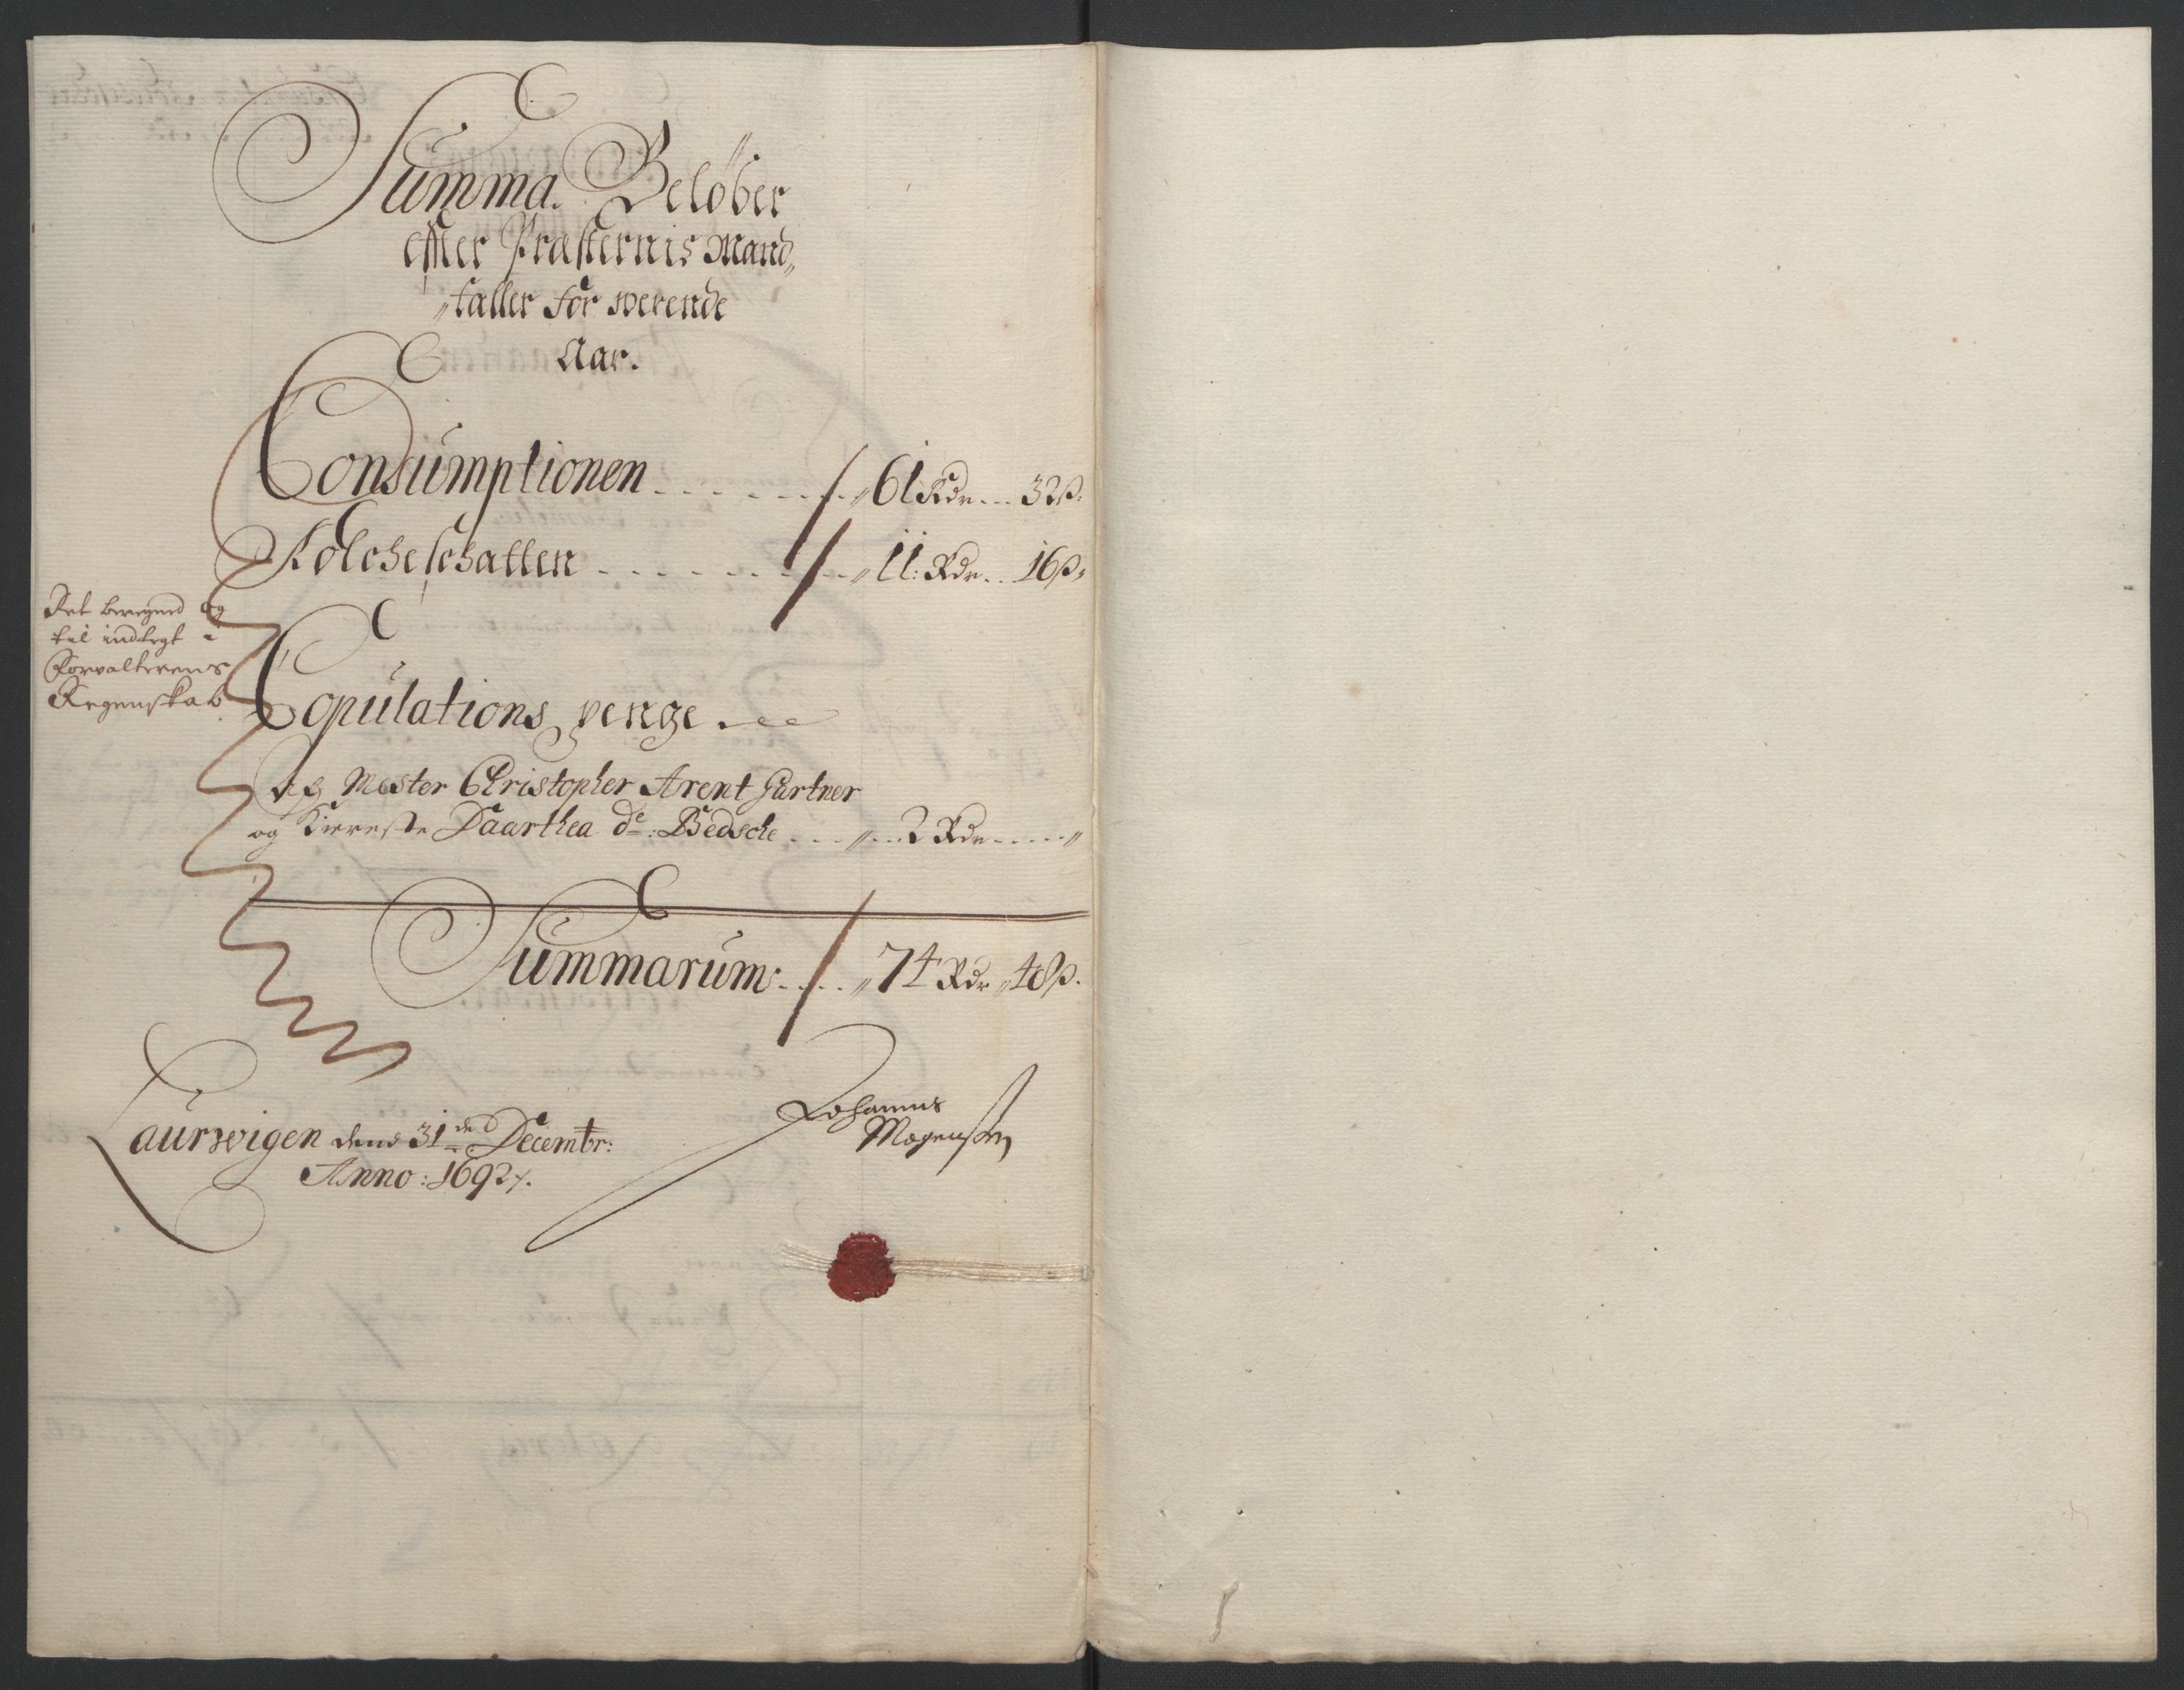 Summa. Beløber
effter Præsternis Mand„
„taller for werende
Aar.
Consumptionen . . . . . . . „ 61 Rdr . . . 32 ß.
Folcheschatten . . . . . . . „ 11: Rdr . . 16 ß.
Ret beregned og
til indtegt i
Forvalterens
Regenskab
Copulations penge .
Af Mester Christopher Arent Gartner
og Kiereste Daarthea de: Bedsche . . . „ . . 2 Rdr . . . . „
Summarum: . . . . „ 74 Rdr „ 48 ß.
Laurwigen dend 31de Decembr:
Anno: 1692 /.
Johannes
Mogensen